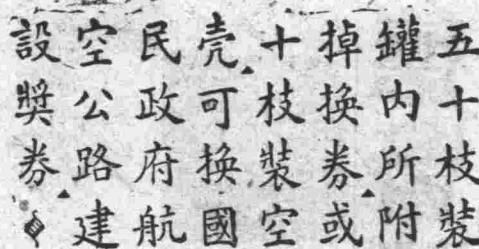 五十枝裝
罐內所附
掉換券或
十枝裝空
壳可換國
民政府航
空公路建
設奬券